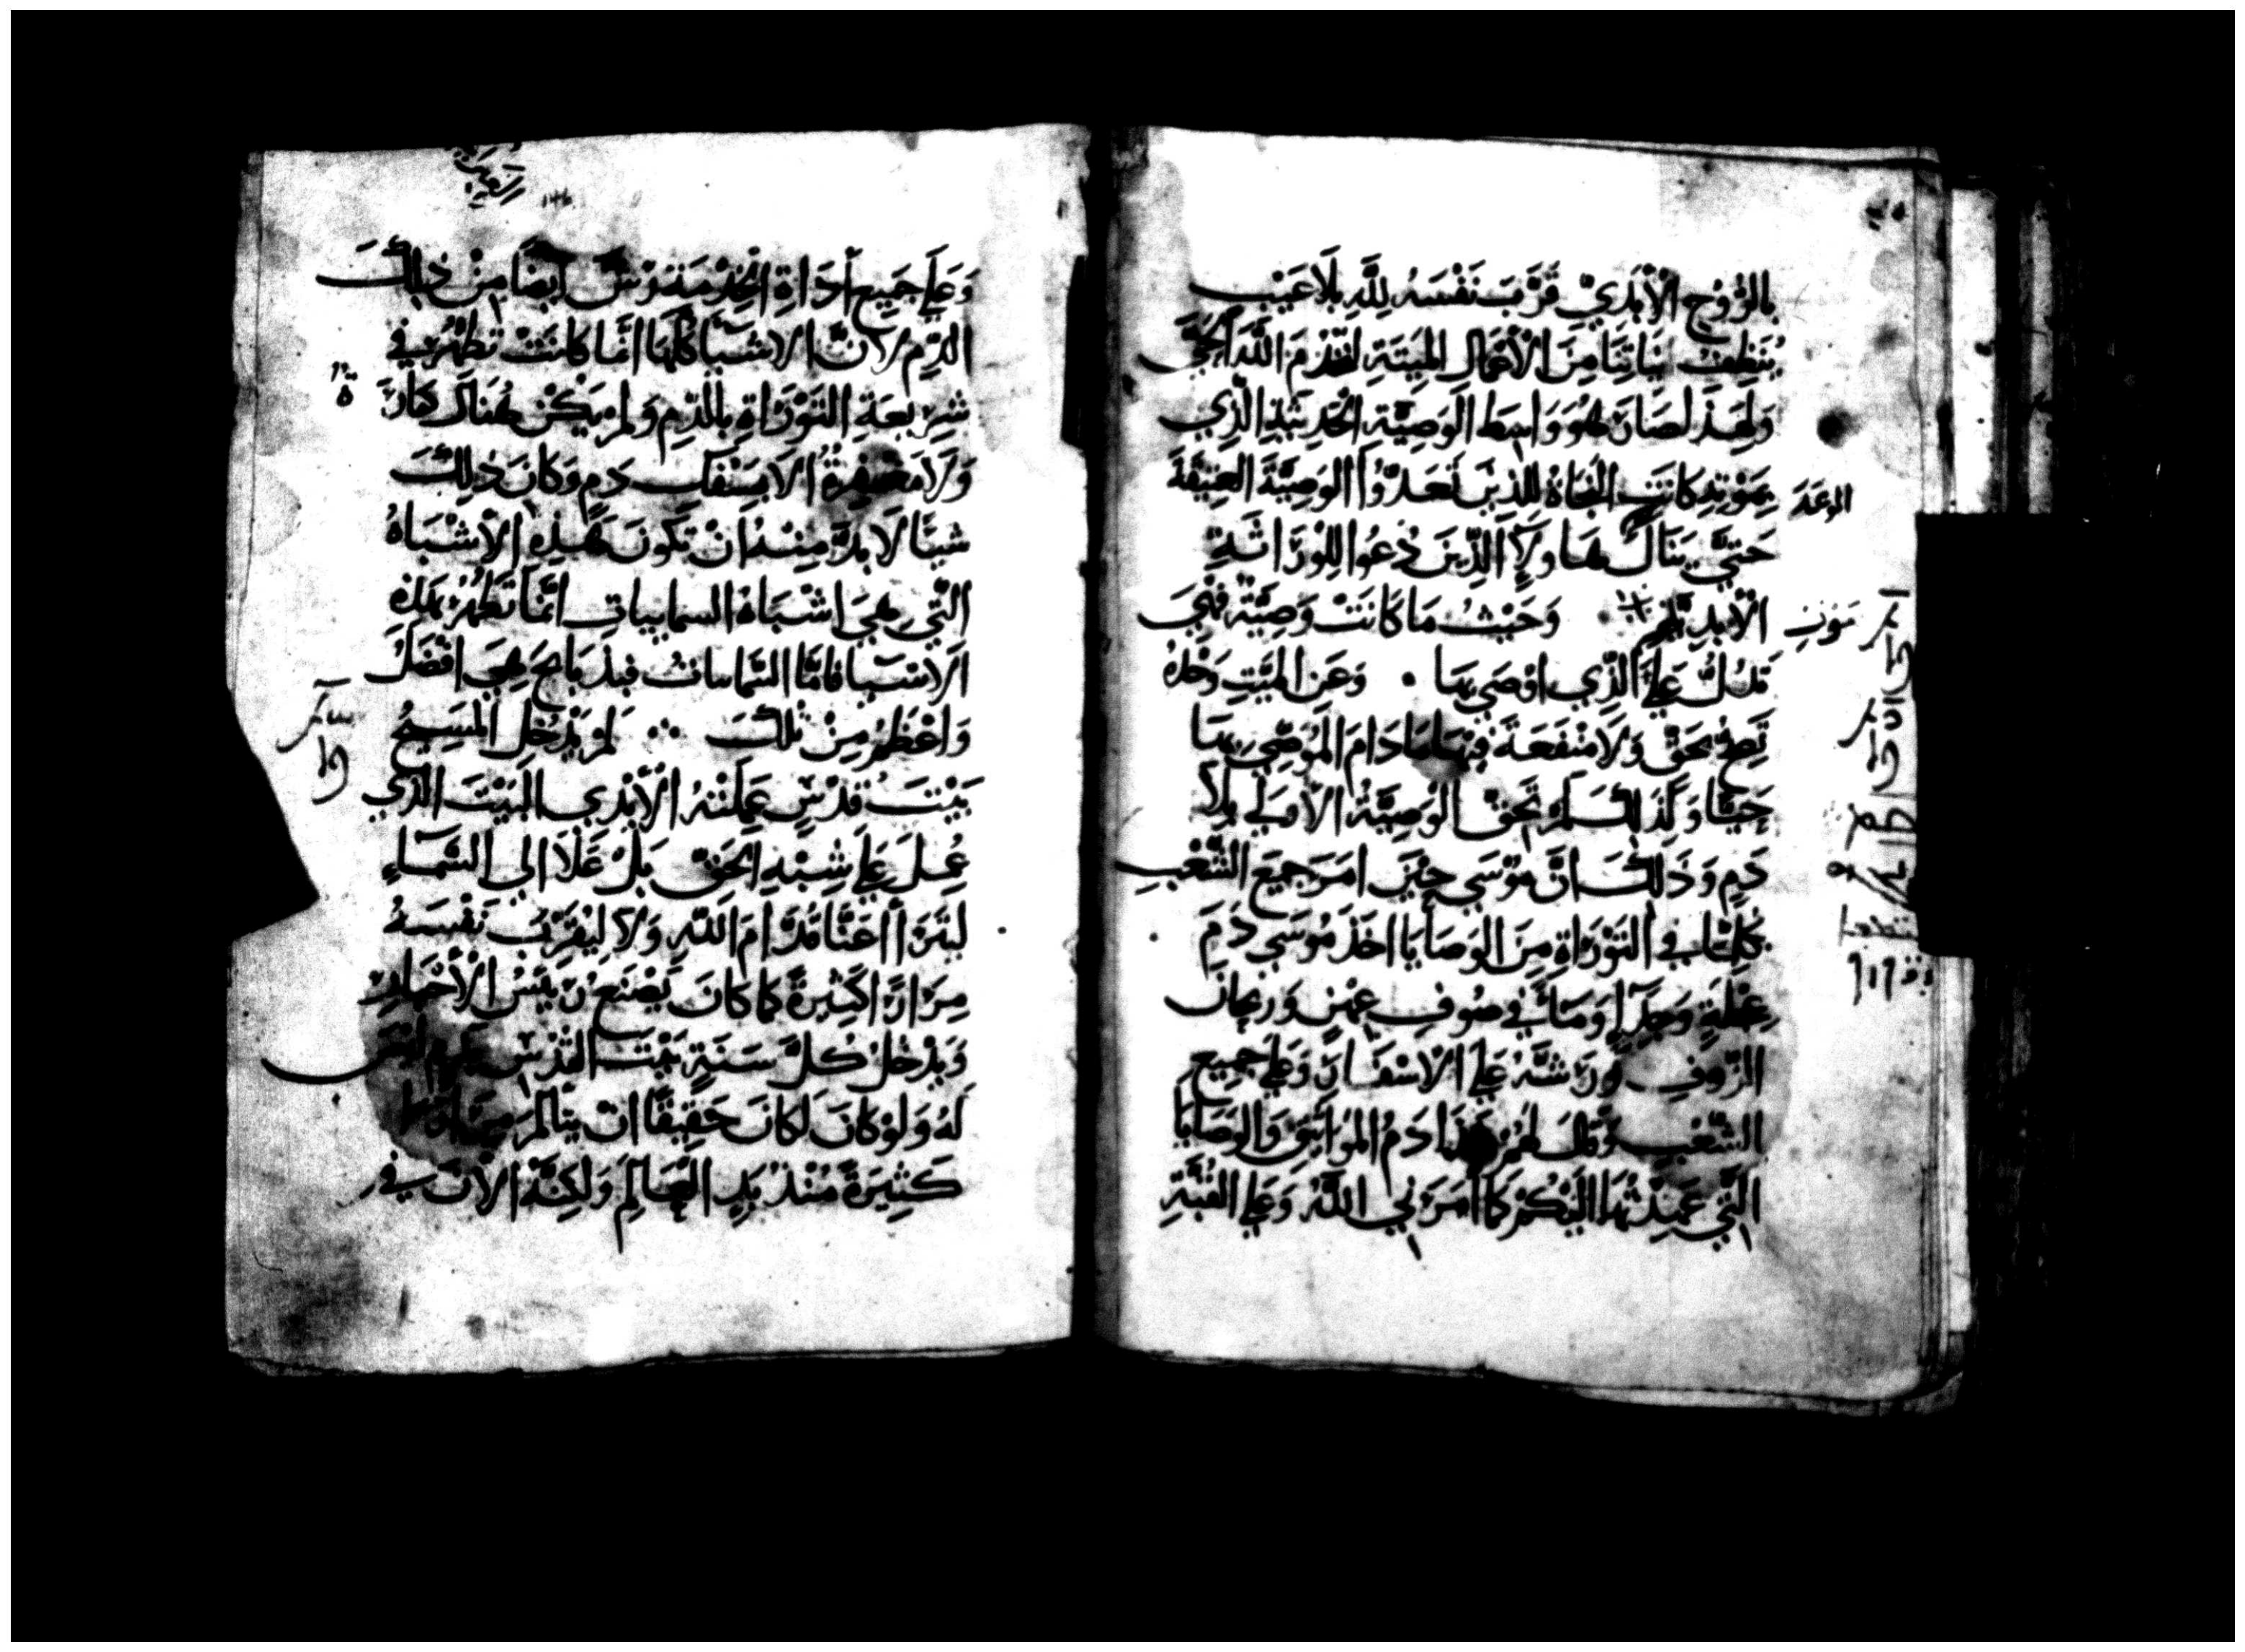 بالرُّوْحِ الْأَبَدِيِّ قَرَّبَ نَفْسَهُ لِلَّهِ بِلَا عَيْبٍ
يُنَظِّفُ نِيَاتِنَا مِنَ الْأَعْمَالِ المَيِّتَةِ لِنَخْدُمَ اللَّهَ الْحَيَّ
وَلِهَذَا صَارَ هُوَ وَاسِطَ الْوَصِيَّةِ الْحَدِيثَةِ الَّذِي
بِمَوْتِهِ كَانَتِ النَّجَاةُ لِلَّذِينَ تَعَدَّوْا الوَصِيَّةَ العَتِيقَةَ
حَتَّى يَنَالَ هَاولَآ الَّذِينَ دُعُوا لِلْوَرَاثَةِ
الْأَبَدِيَّةِ وَحَيْثُ مَا كَانَتْ وَصِيَّةٌ فَهِيَ
تَدُلُّ عَلَى الَّذِي اوْصَى بِهَا • وَعَنِ الْمَيِّتِ وَحْدَهُ
تَصِحُّ بِحَقٍّ وَلَا مَنْفَعَةَ فِيْهَا مَا دَامَ الْمُوصِّي بِهَا
حَيًّا وَكَذَلِكَ لَمْ تُحَقَّ الْوَصِيَّةُ الْأُولَى بِلَا
دَمٍ وَذَلِكَ انَّ مُوْسَى حِيْنَ امَرَ جَمِيعَ الشَّعْبِ
بِكُلِّ مَا فِي التَّوْرَاةِ مِنَ الوَصَايَا اخَذَ مُوسَى دَمَ
عِجْلَةٍ وَجِدَآءٍ وَمَآءً فِي صُوفِ عِهْنٍ وَ
الزُّوفِ وَرَشَّهُ عَلَى الْاسْفَارِ وَعَلَى جَمِيعِ
الشَّعْبِ وَقَالَ لَهُمْ هَذَا دَمُ المَوَاثِيقِ وَالوَصَايَا
الَّتِي عَهِدَتْهَا الَيْكُمْ كَمَا امَرَنِي اللَّهُ وَعَلَى القُبَّةِ
وَعَلَى جَمِيعِ أَدَاةِ الْخِدْمَةِ رَشَّ ايضًا مِنْ ذَلِكَ
الدَّمِ لِأَنَّ الاشْيَآ كُلَّهَا انَّمَا كَانَتْ تَطْهُرُ فِي
شَرِيعَةِ التَّوْرَاةِ بِالدَّمِ وَلَمْ يَكُنْ هُنَاكَ كَفَّارَةٌ
وَلَا مَغْفِرَةٌ الَّا بِسَفْكِ دَمٍ وَكَانَ ذَلِكَ
شَيْئًا لَا بُدَّ مِنْهُ انْ تَكُونَ هَذِهِ الْأَشْبَاهُ
الَّتِي هِيَ اشْبَاهُ السماييات انَّمَا تَطْهُرُ بِهَذِهِ
الْاشْيَا فَامَّا السَّماييات فبذَبَايح هِيَ افْضَلُ
وَاعْظَمُ مِنْ تْلكَ لَمْ يَدْخُلِ المَسِيحُ
بَيْتَ قُدْسٍ عَمِلَتْهُ الْأَيْدِي البَيْتَ الذي
عُمِلَ عَلَى شِبْهِ الحَقِّ بَلْ عَلَا الي السَّمَاءِ
لِيَتَرَاأَ عَنَّا قُدَّامَ اللَّهِ وَلَا لِيُقَرِّبَ نَفْسَهُ
مِرَارًا كَثِيرَةً كَمَا كَانَ يَصْنَعُ رَئِيسُ الْأَحْبَارِ
وَيَدْخُلُ كُلَّ سَنَةٍ بَيْتَ القُدْسِ
لَهُ وَلَوْ كَانَ لَكَانَ حَقِيْقًا ان يَتَأَلَّمَ مِرَارًا
كَثِيرَةً مُنْذُ بَدِ العَالَمِ وَلَكِنَّهُ الْآنَ فِي